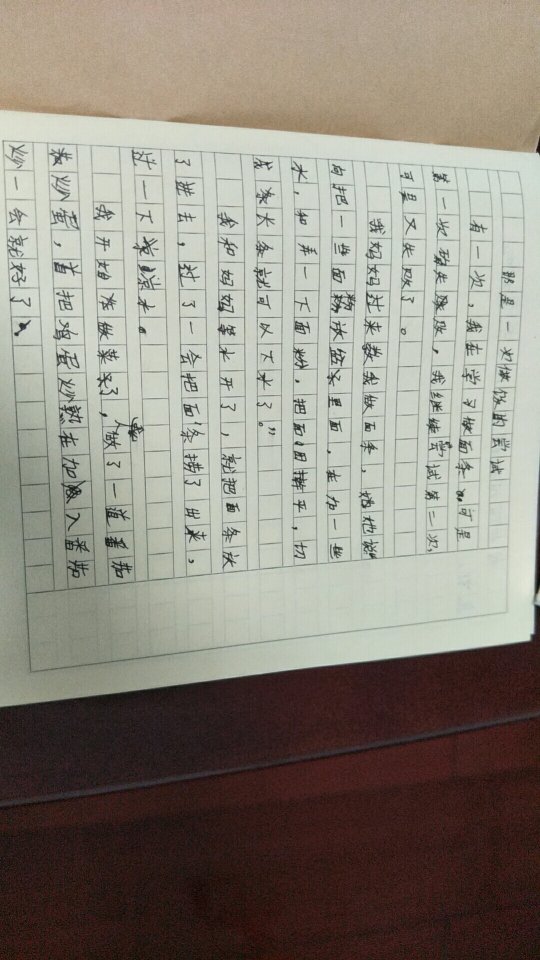 那是一次做饭的尝试
有一次，我在学习做面条，可是
第一次失败，我继续尝试第二次，
可是又失败了。
我妈妈过来教我做面条，妈他说
向把一些面粉放盆里面，在加一些
水，和弄一下面粉，把面用擀平，切
成条长条就可以下水了。”
我和妈妈等水开了，就把面条放
了进去，过了一会把面条捞了出来，
过一下凉水。
我开始准做菜了，做了一道番茄
炒蛋，首把鸡蛋炒熟在加入番茄
炒一会就好了、